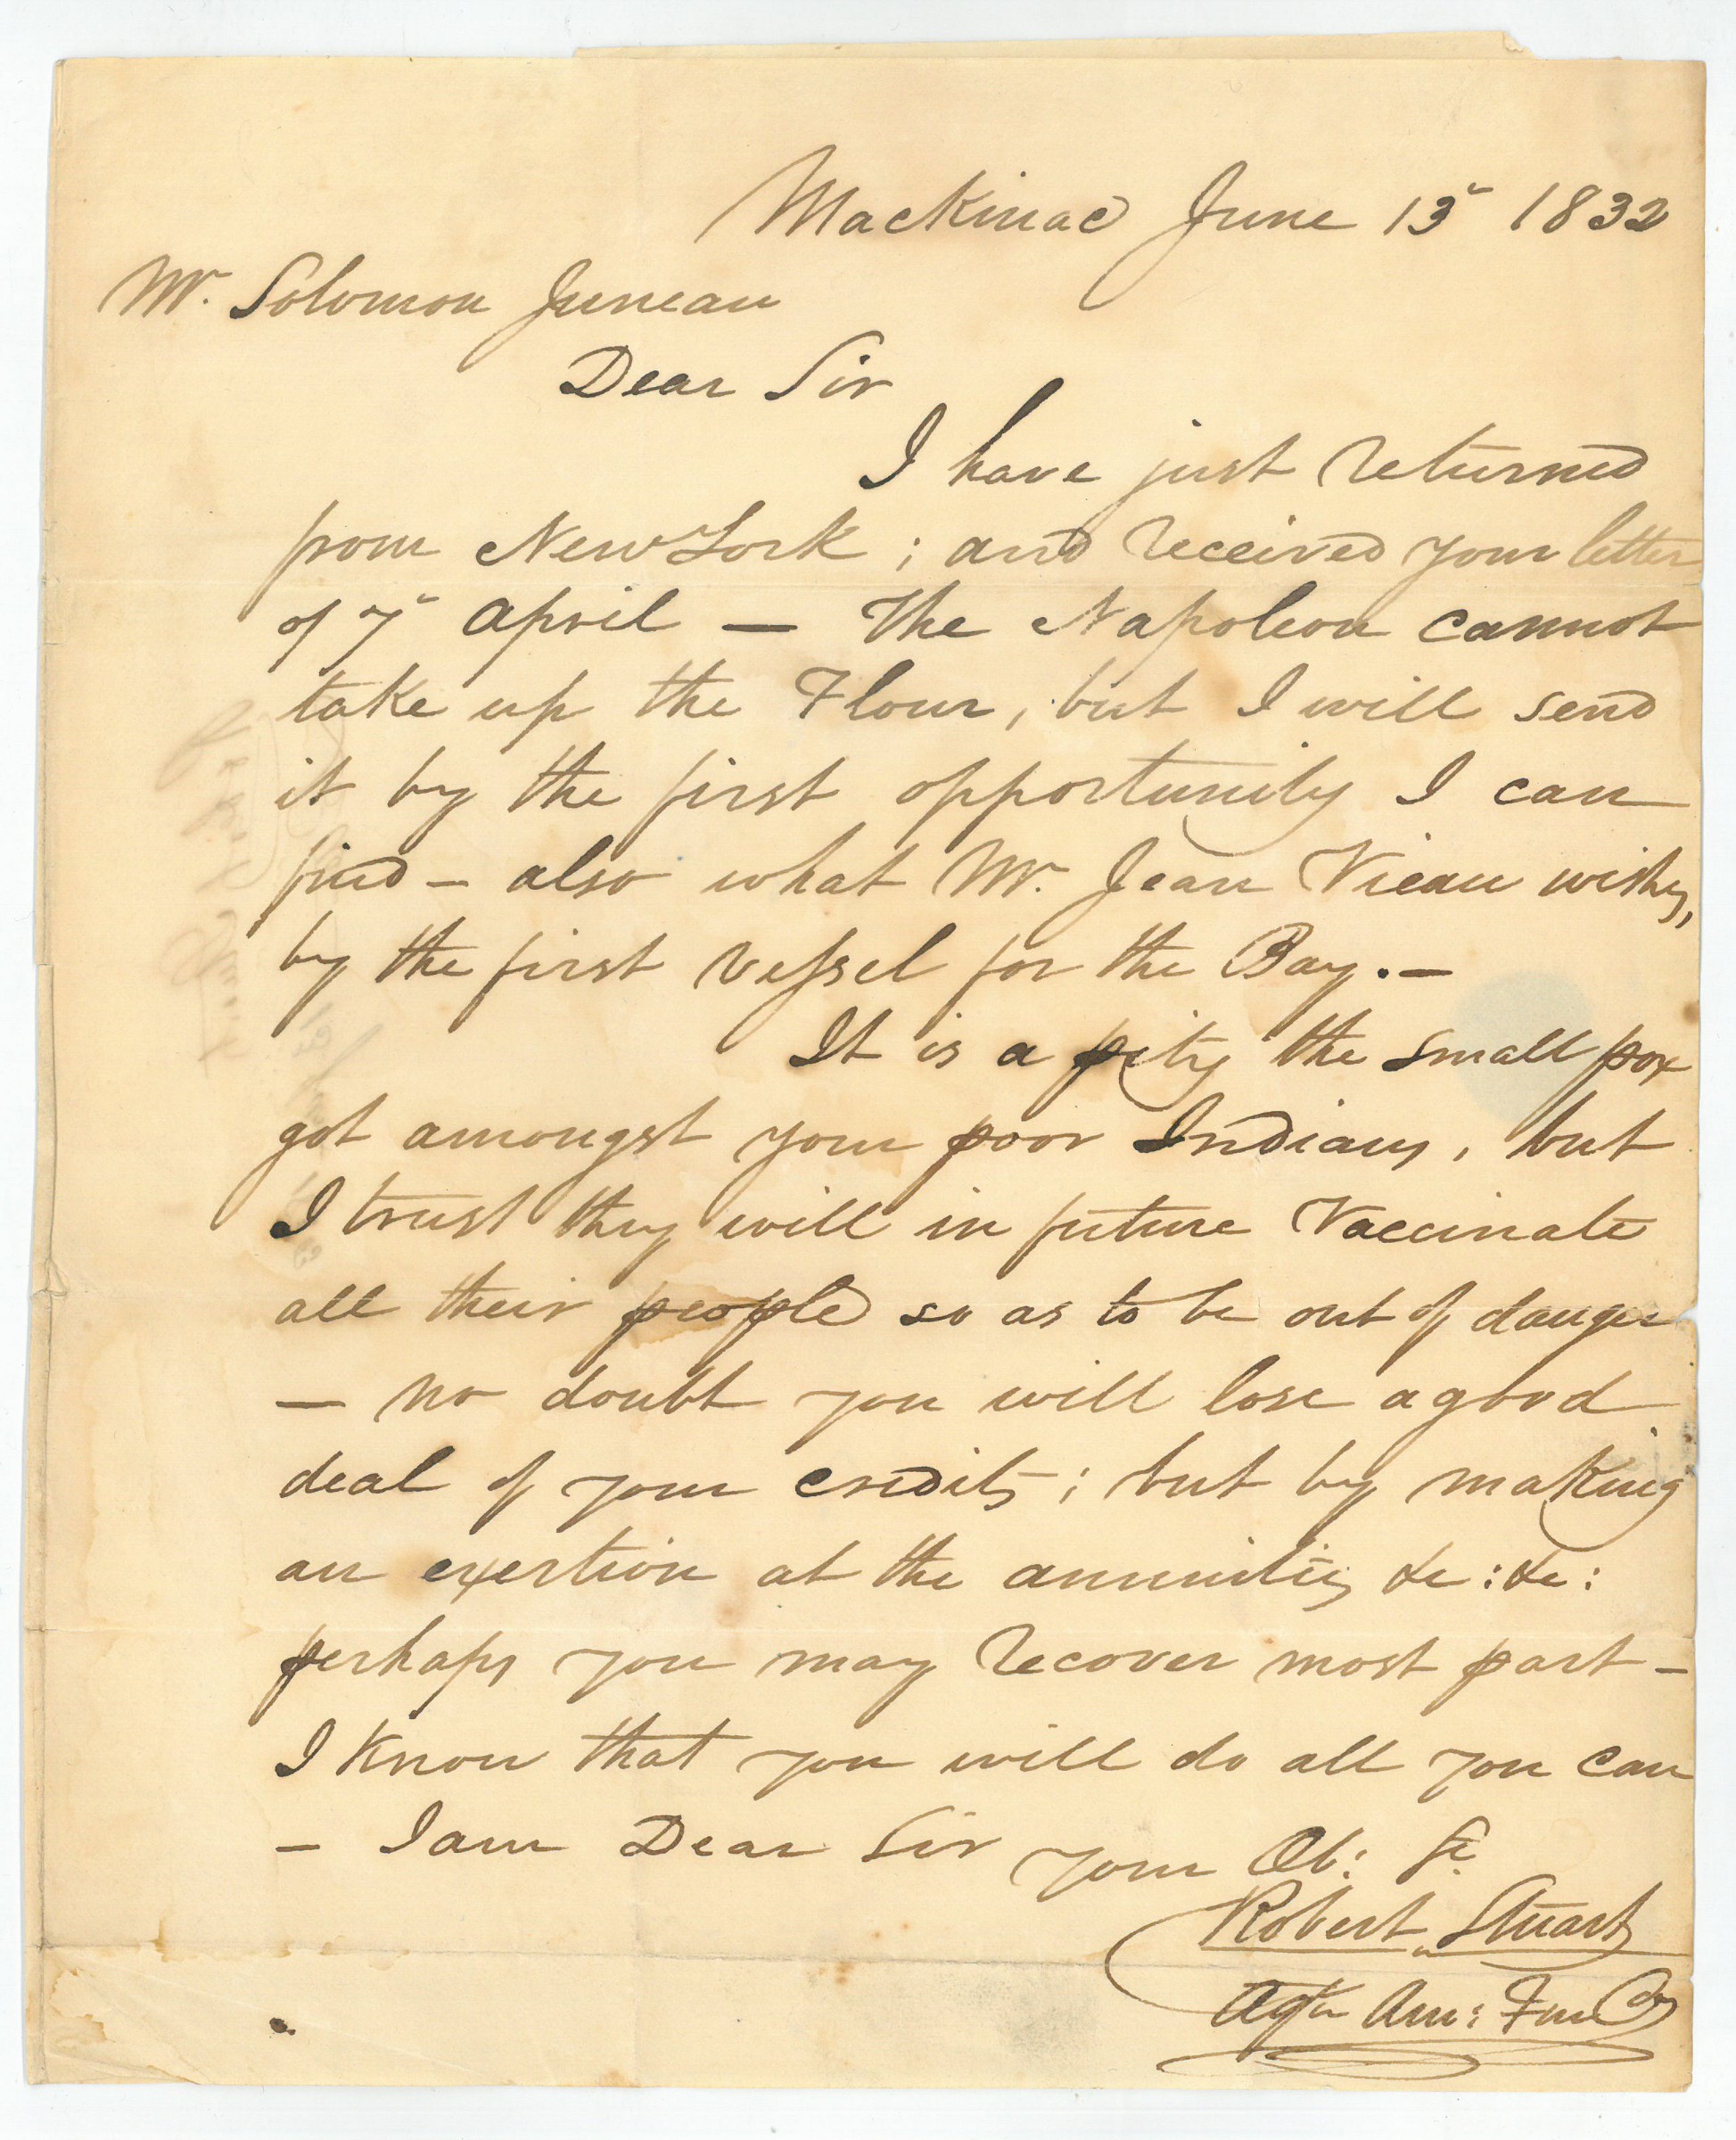 Mackinac June 13 1832
Mr. Solomon Juneau
Dear Sir
I have just returned
from New York ; and received your letter
of 7 april — The Napoleon cannot
take up the Flour, but I will send
it by the first opportunity I can
find – also what Mr. Jean Vieau wishes,
by the first vessel for the Bay. –
It is a pity the small pox
got amongst your poor Indians, but
I trust they will in future Vaccinate
all their people so as to be out of danger
— no doubt you will lose a good
deal of your credits ; but by making
an exertion at the annuities &c : &c :
perhaps you may recover most part –
I Know that you will do all you can
– I am Dear Sir your Ob: St.
Robert Stuart
Agt Am: Fur Co